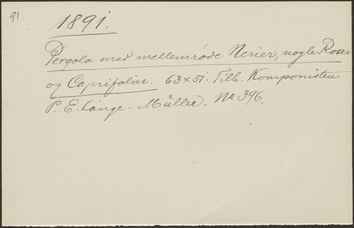 91
1891.
Pergola med mellemrøde Nerier, nogle Roser
og Caprifolier. 63x51. Tilh. Komponisten
P. E. Lange-Müller. No 396.